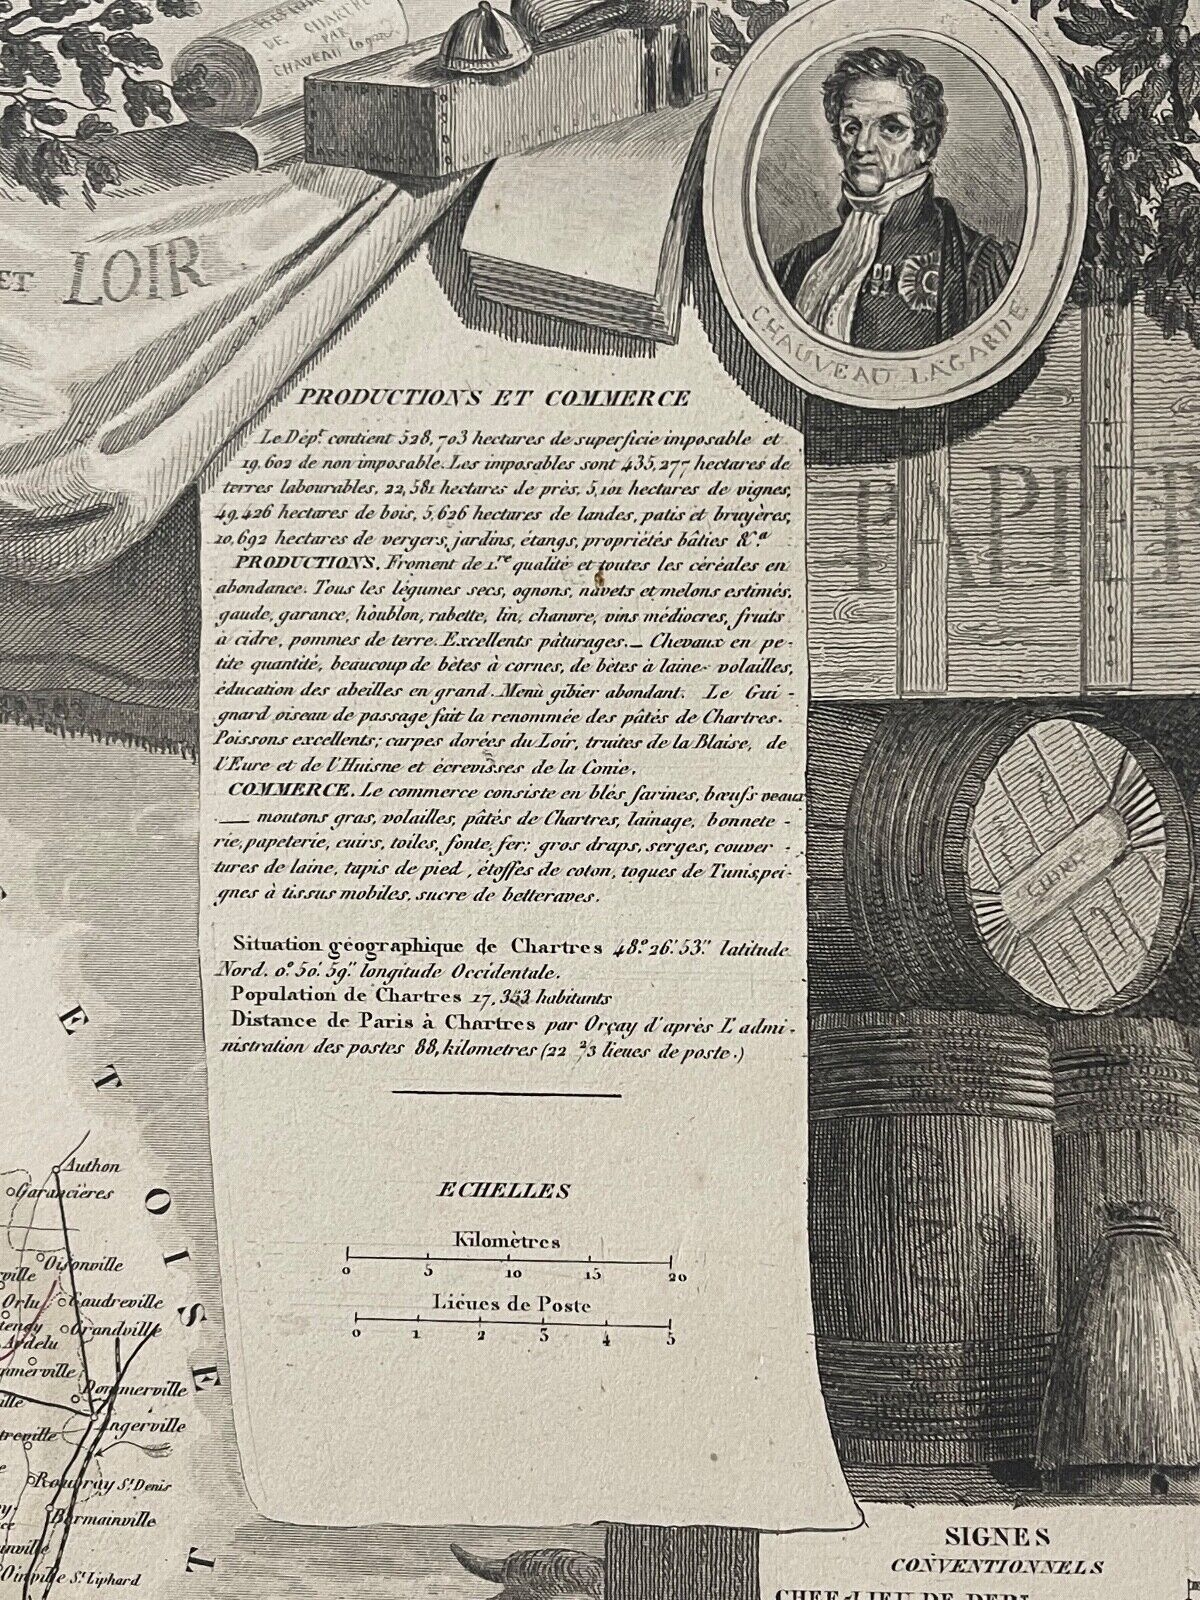 DE CHARTRES
PAR
CHAVEAU Lagarde
ET LOIR
CHAUVEAU LAGARDE
PRODUCTIONS ET COMMERCE
Le Dépt contient 528,703 hectares de superficie imposable et
19,602 de non imposable. Les imposables sont 435,277 hectares de
terres labourables, 22,581 hectares de près, 5,101 hectares de vignes,
49,426 hectares de bois, 5,626 hectares de landes, patis et bruyères,
10,692 hectares de vergers, jardins, étangs, propriétés bâties &.a
PRODUCTIONS. Froment de 1.re qualité et toutes les céréales en
abondance. Tous les légumes secs, ognons, navets et melons estimés,
gaude, garance, houblon, rabette, lin, chanvre, vins médiocres, fruits
à cidre, pommes de terre. Excellents pâturages. — Chevaux en pe-
tite quantité, beaucoup de bêtes à cornes, de bêtes à laine- volailles,
éducation des abeilles en grand. Menù gibier abondant. Le Gui-
gnard oiseau de passage fait la renommée des pâtés de Chartres.
Poissons excellents; carpes dorées du Loir, truites de la Blaise, de
l'Eure et de l'Huisne et écrevisses de la Conie.
COMMERCE. Le commerce consiste en blés farines, bœufs veaux
— moutons gras, volailles, pâtés de Chartres, lainage, bonnete-
rie, papeterie, cuirs, toiles, fonte, fer; gros draps, serges, couver-
tures de laine, tapis de pied, étoffes de coton, toques de Tunis, pei-
gnes à tissus mobiles, sucre de betteraves.
Situation géographique de Chartres 48.° 26.' 53." latitude
Nord. 0.° 50.' 59." longitude Occidentale.
Population de Chartres 17,353 habitants
Distance de Paris à Chartres par Orçay d'après L'admi-
nistration des postes 88, kilometres (22 2/3 lieues de poste.)
ECHELLES
Kilomètres
0 5 10 15 20
Lieues de Poste
0 1 2 3 4 5
CIDRE
ET OISE ET
Authon
Garancières
Oisonville
Orlu
Gaudreville
Grandville
Ardelu
Dommerville
Angerville
Rouvray St. Denis
Barmainville
Oinville St. Liphard
SIGNES
CONVENTIONNELS